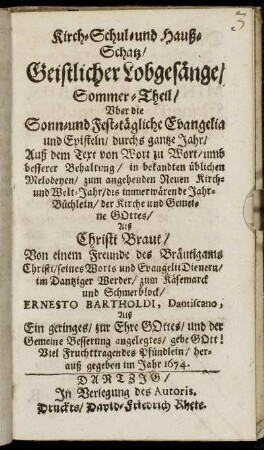 3
Kirch-Schul-und Hauß-
Schatz/
Geistlicher Lobgesänge/
Sommer-Theil/
Vber die
Sonn-und Fest-tägliche Evangelia
und Episteln/ durchs gantze Jahr/
Auß dem Text von Wort zu Wort/ umb
besserer Behaltung/ in bekandten üblichen
Melodeyen/ zum angehenden Neuen Kirch-
und Welt-Jahr/ dis immerwärende Jahr-
Büchlein/ der Kirche und Gemei-
ne GOttes/
Alß
Christi Braut/
Von einem Freunde des Bräutigams
Christi/ seines Worts und Evangelii Dienern/
im Dantziger Werder/ zum Käsemarck
und Schmerblock/
ERNESTO BARTHOLDI, Dantiscano,
Alß
Ein geringes/ zur Ehre GOttes/ und der
Gemeine Besserung angelegtes/ gebe GOtt!
Viel Fruchttragendes Pfündlein/ her-
auß gegeben im Jahr 1674.
DANTZIG/
In Verlegung des Autoris.
Druckts/ David-Friedrich Rhete.